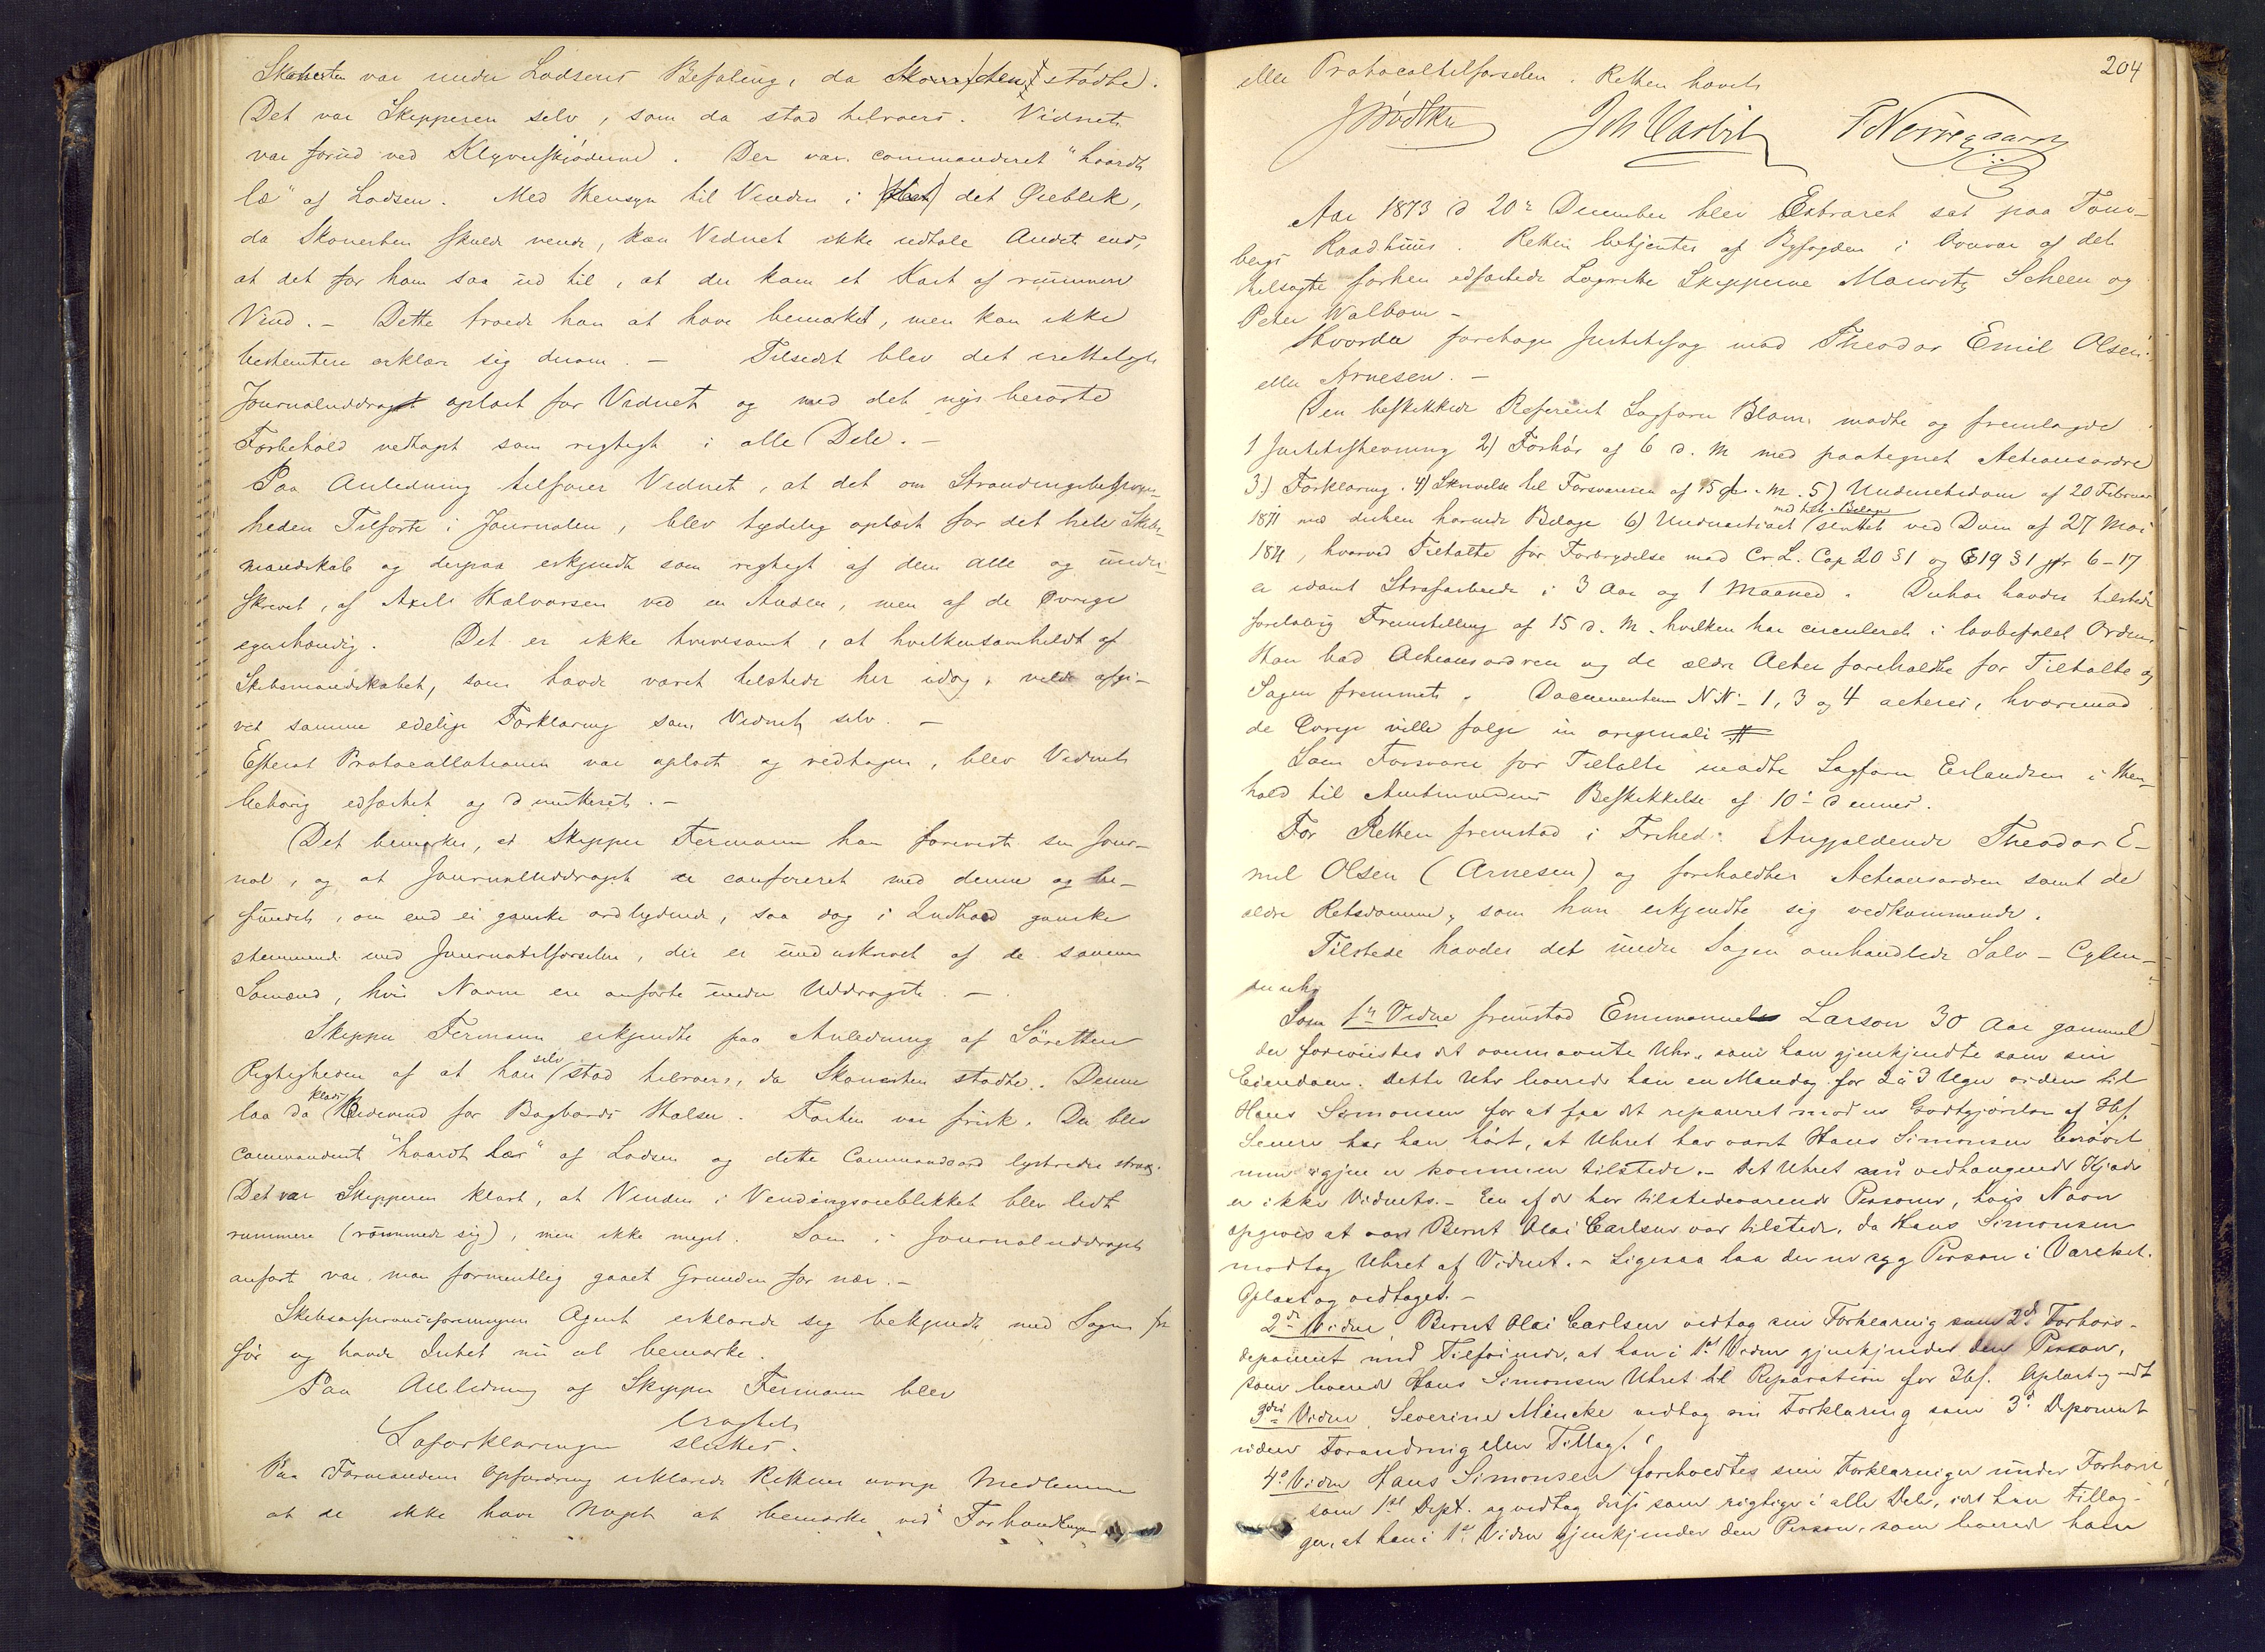 Skonnerten var under Lodsens Befaling, da Skonnerten stødte.
Det var Skipperen selv, som da stod tilroers. Vidnet
var forud ved Klyverskjøderne. Der var commanderet "haardt
læ" af Lodsen. Med Hensyn til Vinden i det Øieblik,
da Skonnerten skulde vende, kan Vidnet ikke udtale Andet end,
at det for ham saa ud til, at der kom et Kast af rummere
Vind. – Dette troede han at have bemærket, men kan ikke
bestemtere erklære sig derom. – Tilsidst blev det irettelagte
Journaluddraget oplæst for Vidnet og med det nys berørte
Forbehold vedtaget som rigtigt i alle Dele. –
Paa Anledning tilføier Vidnet, at det om Strandingsbegiven-
heden Tilførte i Journalen, blev tydelig oplæst for det hele Skibs-
mandskab og derpaa erkjendt som rigtigt af dem alle og under-
skrevet, af Axel Halvorsen ved en Anden, men af de Øvrige
egenhændig. Det er ikke tvivlsomt, at hvilkensomhelst af
Skibsmandskabet, som havde været tilstede her idag, vilde afgi-
vet samme edelige Forklaring som Vidnet selv. –
Efterat Protocollationen var oplæst og vedtagen, blev Vidnet
behørig edfæstet og dimitteret. –
Det bemærkes, at Skipper Fermann har forevist sin Jour-
nal, og at Journaluddraget er confereret med denne og be-
fundet, om end ei ganske ordlydende, saa dog i Indhold ganske
stemmende med Journaltilførselen, der er underskrevet af de samme
Sømænd, hvis Navne ere anførte under Uddraget. –
Skipper Fermann erkjendte paa Anledning af Søretten
Rigtigheden af at han selv stod tilroers, da Skonnerten stødte. Denne
laa da Bidevind for Bagbords Halse. Farten var frisk. Der blev
commanderet "haardt læ" af Lodsen og dette Commandoord lystredes strax.
Det var Skipperen klart, at Vinden i Vendingsøieblikket blev lidt
rummere (rømmede sig), men ikke meget. Som i Journaluddraget
anført var man formentlig gaaet Grunden for nær. –
Skibsassuranceforeningens Agent erklærede sig bekjendt med Sagen fra
før og havde Intet nu at bemærke.
Paa Anledning af Skipper Fermann blev
Søforklaringen sluttet.
Paa Formandens Opfordring erklærede Rettens øvrige Medlemmer
at de ikke have Noget at bemærke ved Forhandlingen
204
eller Protocoltilførselen. Retten hævet
Aar 1873 d 20de December blev Extraret sat paa Tøns-
bergs Raadhuus. Retten betjentes af Byfogden i Overvær af det
tilsagte forhen edfæstede Lagrette Skipperne Mauritz Scheen og
Peter Walbom –
Hvorda foretoges Justitssag mod Theodor Emil Olsen
eller Arnesen. –
Den beskikkede Referent Sagfører Blom mødte og fremlagde
1 Justitsstevning 2) Forhør af 6 d. M. med paategnet Actionsordre
3) Forklaring. 4) Skrivelse til Forsvareren af 15 ds. M. 5) Underretsdom af 20 Februar
1871 med Bilage 6) med tilh. Bilage sluttet ved Dom af 27 Mai
1871, hvorved Tiltalte for Forbrydelse mod Cr. L. Cap 20 § 1 og 19 § 1 jfr 6–17
er idømt Strafarbeide i 3 Aar og 1 Maaned. Derhos havdes tilstede
foreløbig Fremstilling af 15 d. M. hvilken har circuleret i lovbefalet Orden.
Han bad Actionsordren og de ældre Acter foreholdte for Tiltalte og
Sagen fremmet. Documenterne NNo 1, 3 og 4 acteres, hvorimod
de Øvrige ville følge in originali
Som Forsvarer for Tiltalte mødte Sagfører Erlandsen i Hen-
hold til Amtmandens Beskikkelse af 10de dennes.
For Retten fremstod i Frihed: Angjældende Theodor E-
mil Olsen (Arnesen) og foreholdtes Actionsordren samt de
ældre Retsdomme, som han erkjendte sig vedkommende.
Tilstede havdes det under Sagen omhandlede Sølv-Cylin-
deruhr.
Som 1ste Vidne fremstod Emmanuel Larson 30 Aar gammel
der forevistes det ovennævnte Uhr, som han gjenkjendte som sin
Eiendom. Dette Uhr leverede han en Mandag for 2 à 3 Uger siden til
Hans Simonsen for at faa det repareret mod en Godtgjørelse af 3 [?]
Senere har han hørt, at Uhret har været Hans Simonsen berøvet
men igjen er kommen tilstede. – Det Uhret nu vedhængende Kjæde
er ikke Vidnets. – En af de her tilstedeværende Personer, hvis Navn
opgives at være Bernt Olai Carlsen var tilstede, da Hans Simonsen
modtog Uhret af Vidnet. – Ligesaa laa der en syg Person i Værelset.
Oplæst og vedtaget. –
2det Vidne Bernt Olai Carlsen vedtog sin Forklaring som 2det Forhørs-
deponent med Tilføiende, at han i 1ste Vidne gjenkjender den Person,
som leverede Hans Simonsen Uhret til Reparation for Oplæst og vedt
3die Vidne Severine Mincke vedtog sin Forklaring som 3die Deponent
uden Forandring eller Tillæg.
4de Vidne Hans Simonsen foreholdtes sine Forklaringer under Forhøret
som 1ste Dept. og vedtog disse som rigtige i alle Dele, idet han tillæg-
ger, at han i 1ste Vidne gjenkjender den Person, som leverede ham